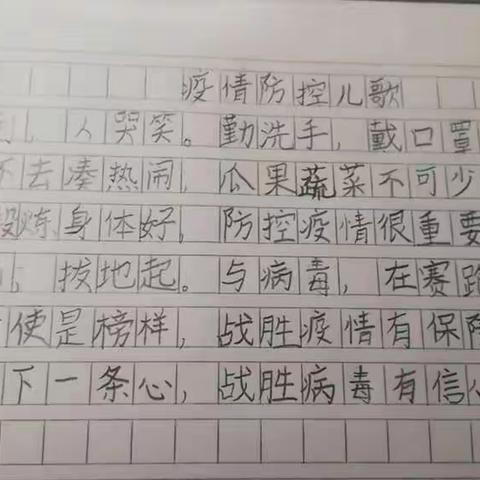 疫情防控儿歌
，人哭笑。勤洗手，戴口罩
不去凑热闹，瓜果蔬菜不可少
锻炼身体好，防控疫情很重要
，拔地起。与病毒，在赛跑
使是榜样，战胜疫情有保障
下一条心，战胜病毒有信心